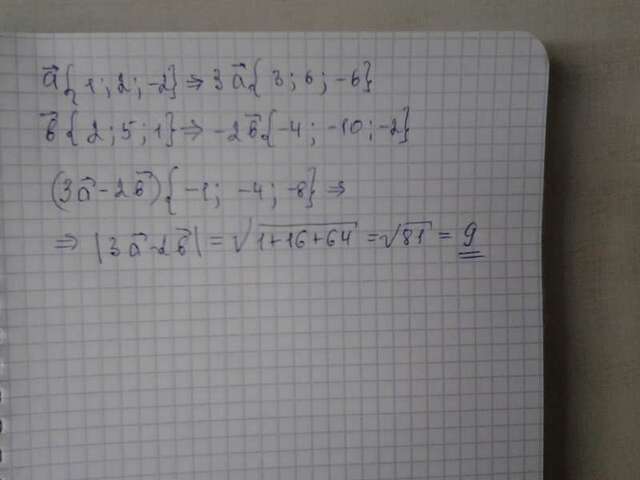 a⃗{1;2;-2}⇒3a⃗{3;6;-6}
b⃗{2;5;1}⇒-2b⃗{-4;-10;-2}
(3a⃗-2b⃗){-1;-4;-8}⇒
⇒|3a⃗-2b⃗|=√1+16+64=√81=9